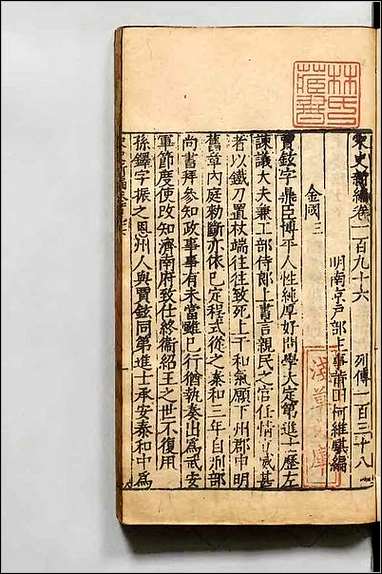 宋史新編卷一百九十六　列傳一百三十八
明南京戶部主事莆田柯維騏編
金國三
賈鉉字鼎臣博平人性純厚好問學大定第進士歷左
諫議大夫兼工部侍郎上書言親民之官任情立威甚
者以鐵刀置杖端往往致死上干和氣願下州郡申明
舊章內庭勑斷亦依已定程式從之泰和三年自刑部
尚書拜參知政事事有未當雖已行猶執奏出爲武安
軍節度使改知濟南府致仕終衞紹王之世不復用
孫鐸字振之恩州人與賈鉉同第進士承安泰和中爲
林氏藏書
淺草文庫